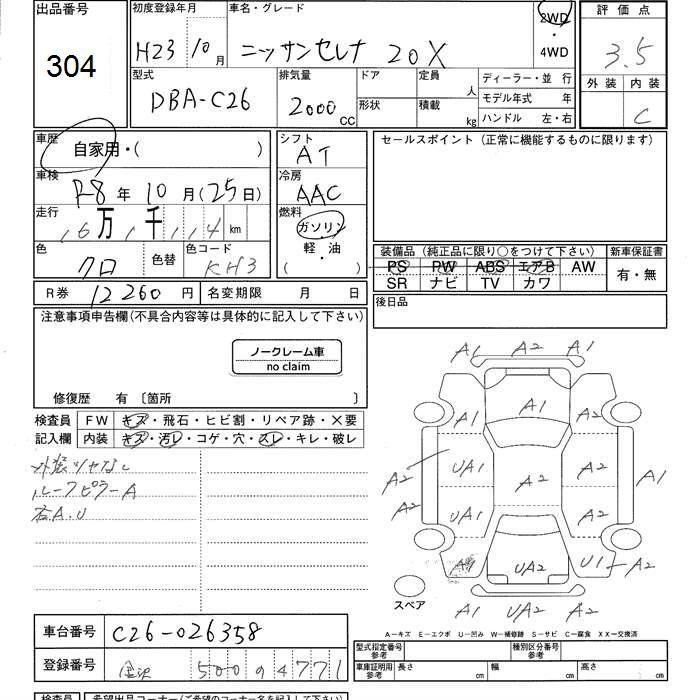 出品番号
304
初度登録年月
H23 10月
車名・グレード
ニッサンセレナ 20X
2WD
・
4WD
評価点
3.5
外装 内装
C
型式
DBA-C26
排気量
2000 CC
ドア
形状
定員
人
積載
kg
ディーラー・並 行
モデル年式 年
ハンドル 左・右
車歴
自家用・( )
車検
R8年 10月(25日)
走行
16万1千114km
色
クロ
色替
色コード
KH3
シフト
AT
冷房
AAC
燃料
ガソリン
軽・油
( )
セールスポイント(正常に機能するものに限ります)
装備品(純正品に限り○をつけて下さい)
PS PW ABS エアB AW
SR ナビ TV カワ
新車保証書
有・無
R券 12260円
名変期限 月 日
後日品
注意事項申告欄(不具合内容等は具体的に記入して下さい)
ノークレーム車
no claim
修復歴 有〔箇所 〕
検査員
記入欄
FW キズ・飛石・ヒビ割・リペア跡・×要
内装 キズ・汚レ・コゲ・穴・スレ・キレ・破レ
外装ツヤなし
ルーフピラーA
右A.U
A1 A2 A1
A1
A1 A1
A2 UA1 A2 A2 A1
A2 UA1 A2
UA2 U1 A2
A1 UA2 A2
スペア
A−キズ E−エクボ U−凹み W−補修跡 S−サビ C−腐食 XX−交換済
車台番号
C26-026358
登録番号
金沢 500 の 4771
型式指定番号
参考
種別区分番号
参考
車庫証明用
参考
長さ cm
幅 cm
高さ cm
検査員
希望出品コーナー(ご希望のコーナー名を記入して下さい)